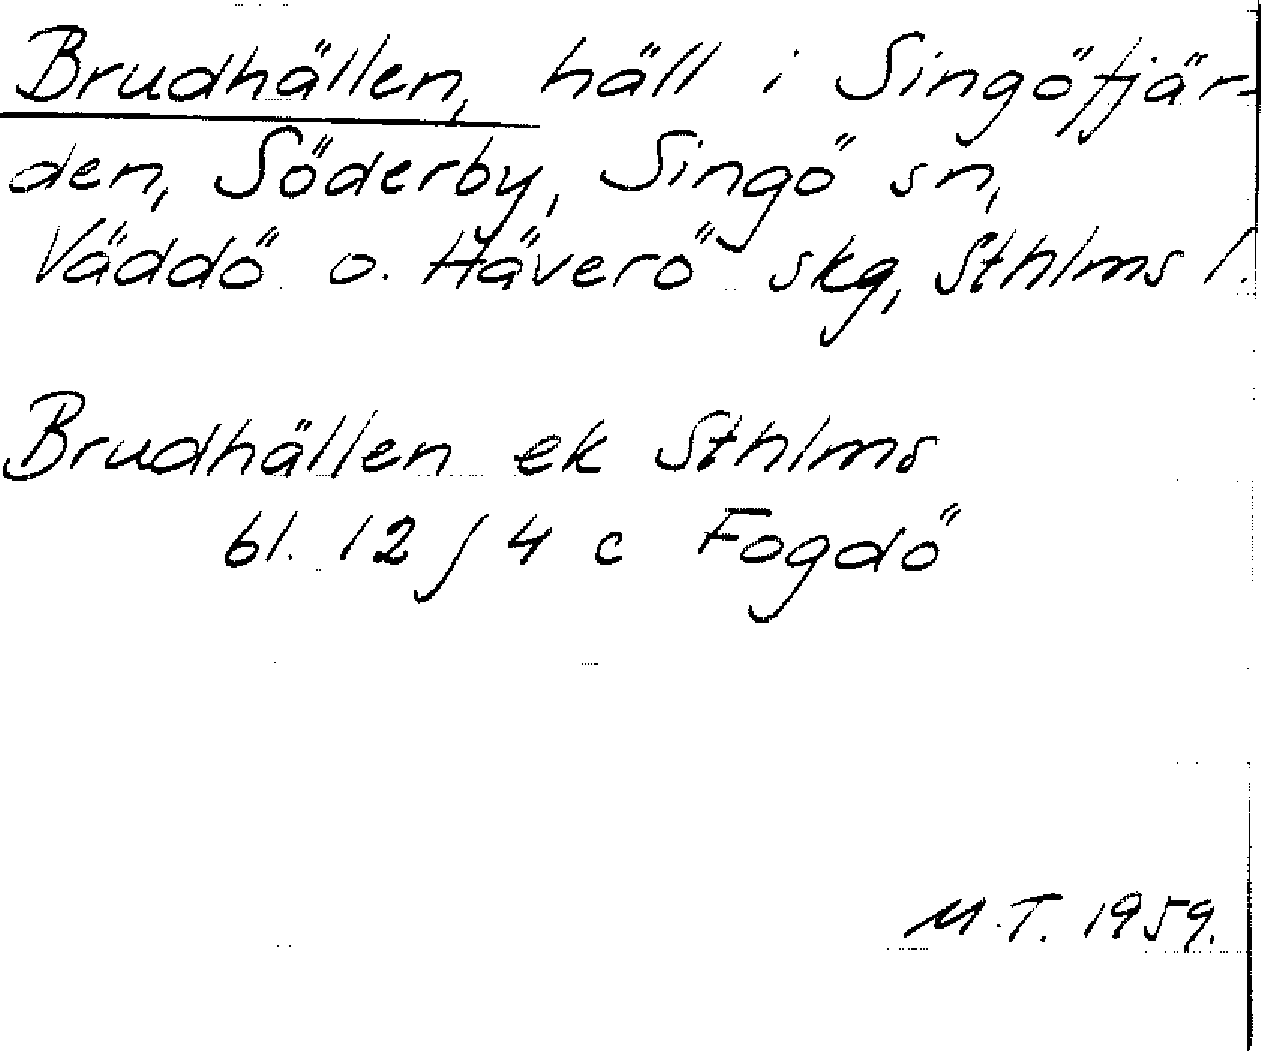 Brudhällen, häll i Singöfjär-
den, Söderby, Singö sn,
Väddö o. Häverö skg, Sthlms l.
Brudhällen ek Sthlms
bl. 12 J 4 c Fogdö
M.T. 1959.